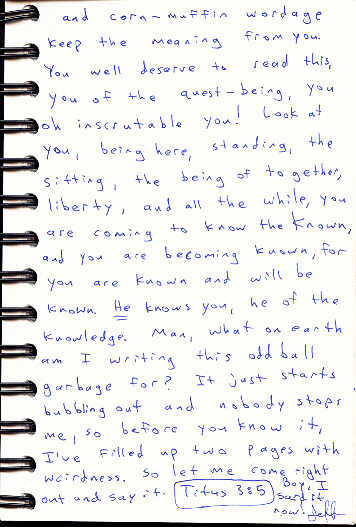 and corn-muffin wordage
keep the meaning from you.
You well deserve to read this,
you of the quest-being, you
oh inscrutable you! Look at
you, being here, standing, the
sitting, the being of together,
liberty, and all the while, you
are coming to know the known,
and you are becoming known, for
you are known and will be
known. He knows you, he of the
knowledge. Man, what on earth
am I writing this oddball
garbage for? It just starts
bubbling out and nobody stops
me, so before you know it,
I've filled up two pages with
weirdness. So let me come right
out and say it. Titus 3:5 Boy, I
said it
now. Jeff